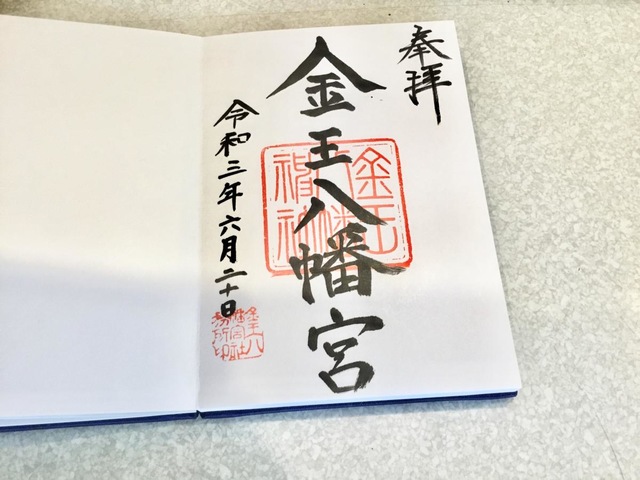 奉拝
金王八幡宮
令和三年六月二十日
金王
八幡
神社
金王八
幡宮社
務所印